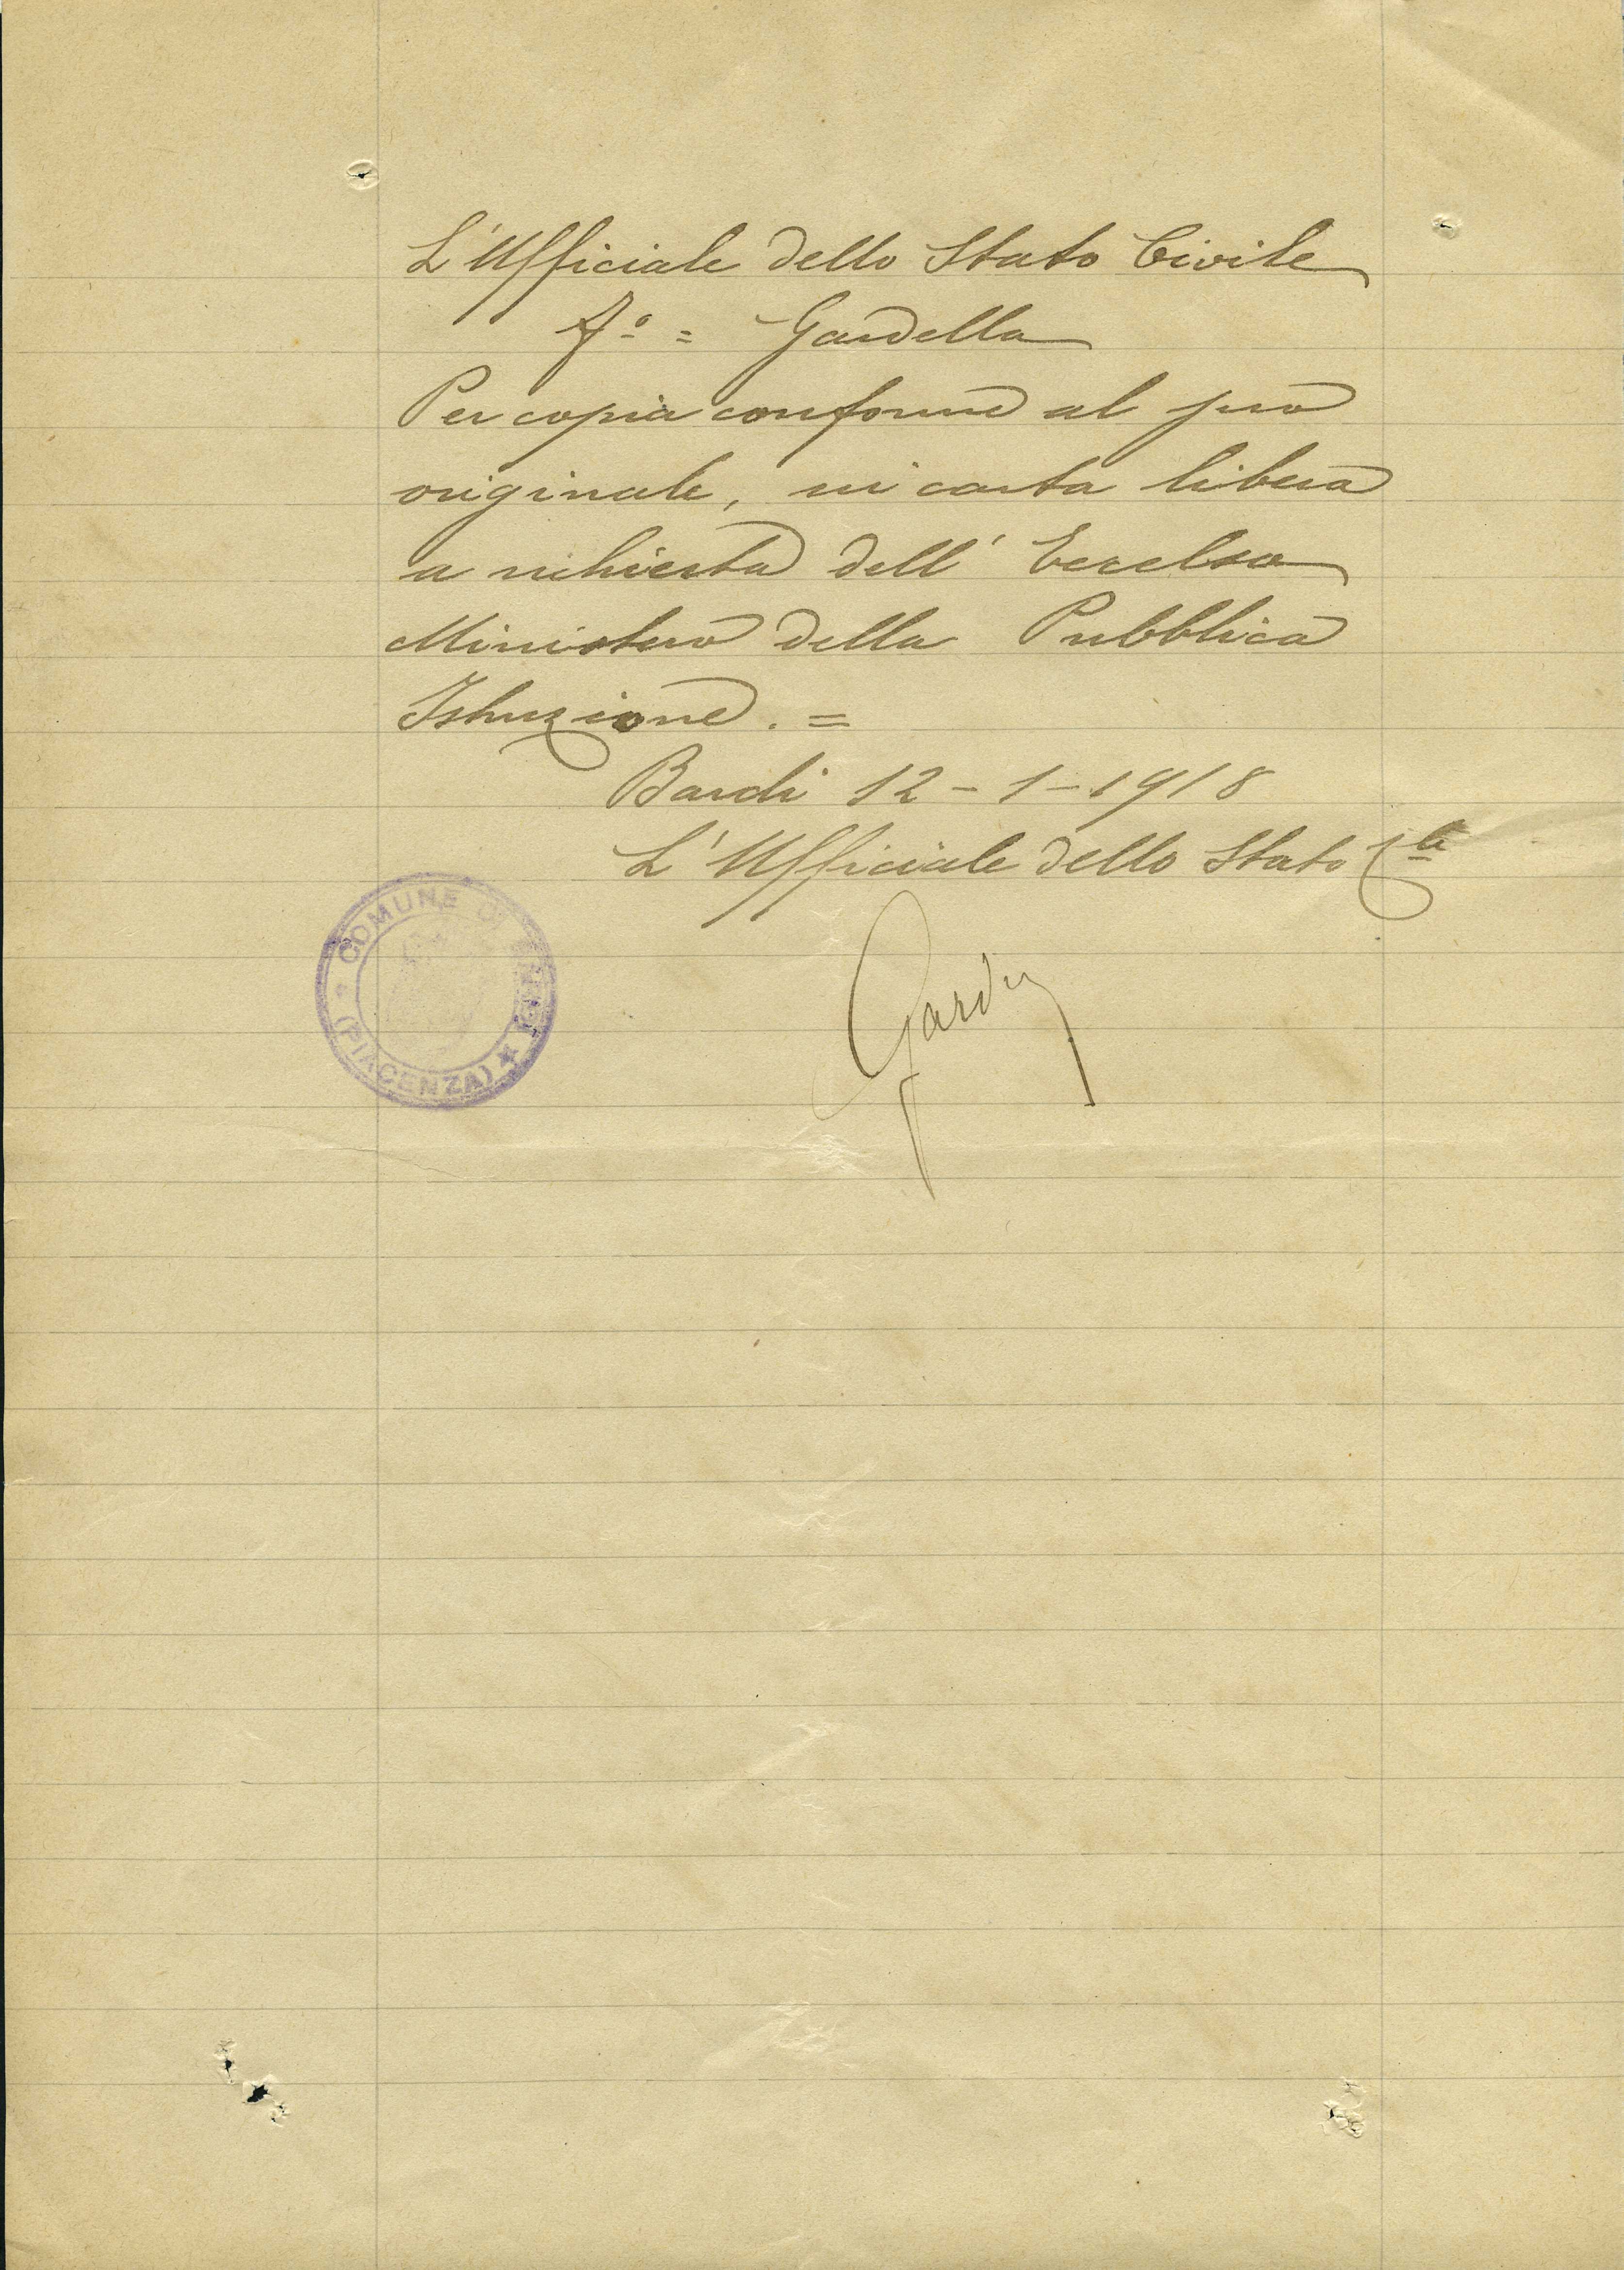 L'Ufficiale dello Stato Civile
F.º = Gardella
Per copia conforme al suo
originale, in carta libera
a richiesta dell' Eccelso
Ministero della Pubblica
Istruzione. =
Bardi 12-1-1918
L'Ufficiale dello Stato C.le
COMUNE DI BARDI
(PIACENZA)